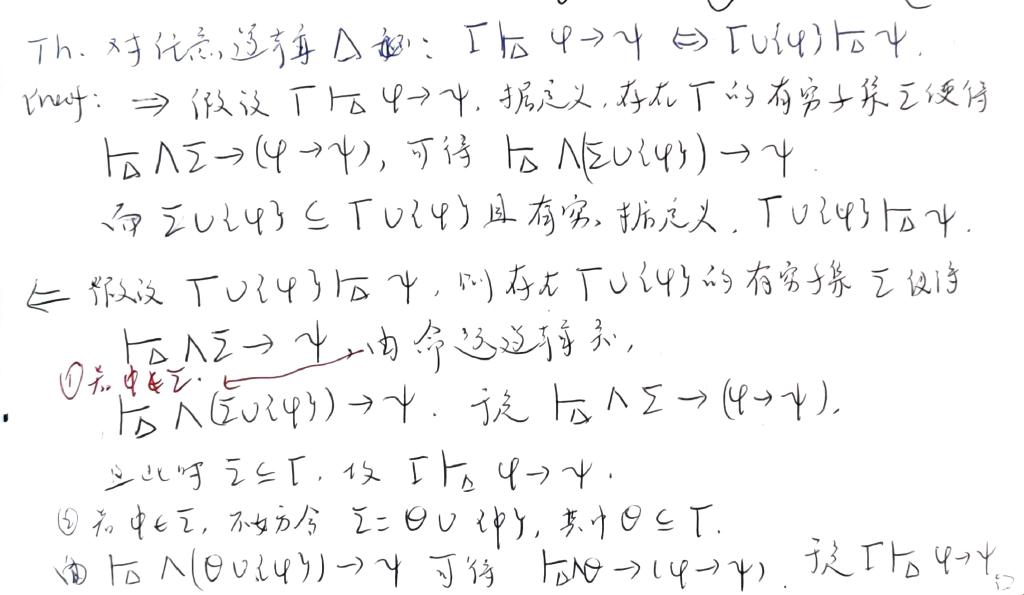 Th. 对任意逻辑 Δ 都: Γ⊢_Δ φ→ψ ⇔ Γ∪{φ}⊢_Δ ψ.
Proof: ⇒ 假设 Γ⊢_Δ φ→ψ. 据定义, 存在 Γ 的有穷子集 Σ 使得
⊢_Δ ∧Σ→(φ→ψ), 可得 ⊢_Δ ∧(Σ∪{φ})→ψ
而 Σ∪{φ} ⊆ Γ∪{φ} 且有穷, 据定义, Γ∪{φ}⊢_Δ ψ.
⇐ 假设 Γ∪{φ}⊢_Δ ψ, 则存在 Γ∪{φ} 的有穷子集 Σ 使得
⊢_Δ ∧Σ→ψ, 由命题逻辑知,
① 若 φ∉Σ.
⊢_Δ ∧(Σ∪{φ})→ψ. 于是 ⊢_Δ ∧Σ→(φ→ψ),
且此时 Σ⊆Γ, 故 Γ⊢_Δ φ→ψ.
② 若 φ∈Σ, 不妨令 Σ=Θ∪{φ}, 其中 Θ⊆Γ.
由 ⊢_Δ ∧(Θ∪{φ})→ψ 可得 ⊢_Δ ∧Θ→(φ→ψ). 于是 Γ⊢_Δ φ→ψ □